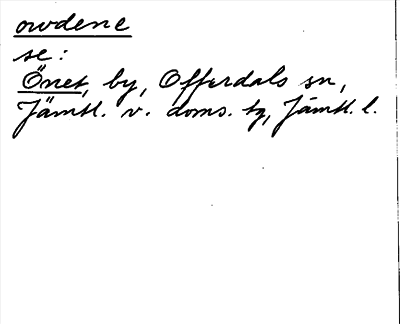 owdene
se:
Önet, by, Offerdals sn,
Jämtl. v. doms. tg, Jämtl. l.